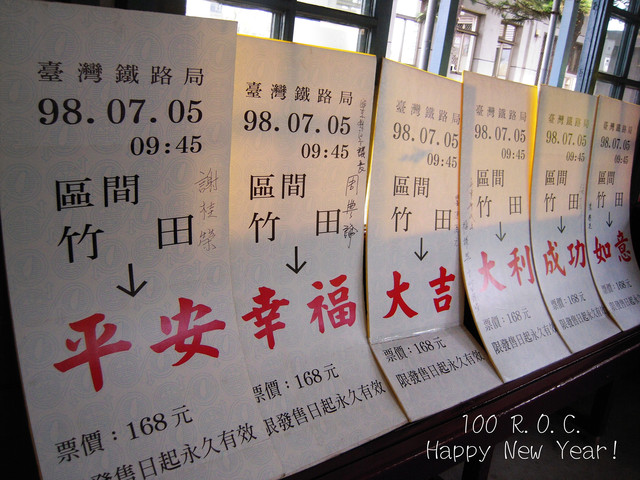 臺灣鐵路局
98.07.05
09:45
區間
竹田
↓
平安
票價：168元
發售日起永久有效
謝桂榮
臺灣鐵路局
98.07.05
09:45
區間
竹田
↓
幸福
票價：168元
限發售日起永久有效
臺灣鐵路局
98.07.05
09:45
區間
竹田
↓
大吉
票價：168元
限發售日起永久有效
臺灣鐵路局
98.07.05
09:45
區間
竹田
↓
大利
票價：168元
限發售日起永久有效
臺灣鐵路局
98.07.05
09:45
區間
竹田
↓
成功
票價：168元
限發售日起永久有效
臺灣鐵路局
98.07.05
09:45
區間
竹田
↓
如意
票價：168元
限發售日起永久有效
100 R.O.C.
Happy New Year!